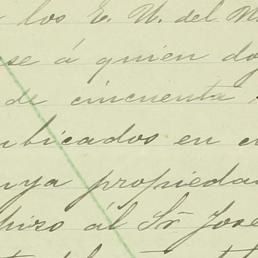 los E. U. del
se á quien
de cincuenta
ubicados en
propiedad
hizo ál Sr. José